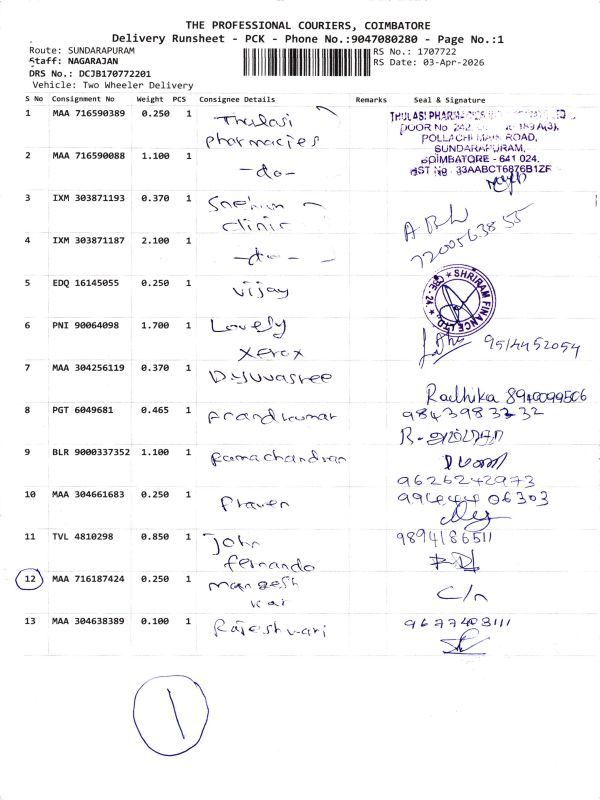 THE PROFESSIONAL COURIERS, COIMBATORE
Delivery Runsheet - PCK - Phone No.:9047080280 - Page No.:1
Route: SUNDARAPURAM
RS No.: 1707722
Staff: NAGARAJAN
RS Date: 03-Apr-2026
DRS No.: DCJB170772201
Vehicle: Two Wheeler Delivery
S No Consignment No Weight PCS Consignee Details Remarks Seal & Signature
1 MAA 716590389 0.250 1 Thulasi
pharmacies
THULASI PHARMACIES
DOOR No 242,
POLLACHI MAIN ROAD,
SUNDARAPURAM,
COIMBATORE - 641 024.
GST No : 33AABCT6876B1ZF
2 MAA 716590088 1.100 1 -do-
3 IXM 303871193 0.370 1
clinic
7200563855
4 IXM 303871187 2.100 1 -do-
5 EDQ 16145055 0.250 1 Vijay
SHRIRAM FINANCE LTD.
CBE - 24
6 PNI 90064098 1.700 1 Lovely
Xerox
9514452054
7 MAA 304256119 0.370 1 Dyuvasree
Radhika 8940099506
8 PGT 6049681 0.465 1 Anandkumar
9843983232
9 BLR 9000337352 1.100 1 Ramachandran
9626242973
10 MAA 304661683 0.250 1 Praven
11 TVL 4810298 0.850 1 John
fernando
9894186511
12 MAA 716187424 0.250 1
C/n
13 MAA 304638389 0.100 1 Rajeshwari
9677403111
1